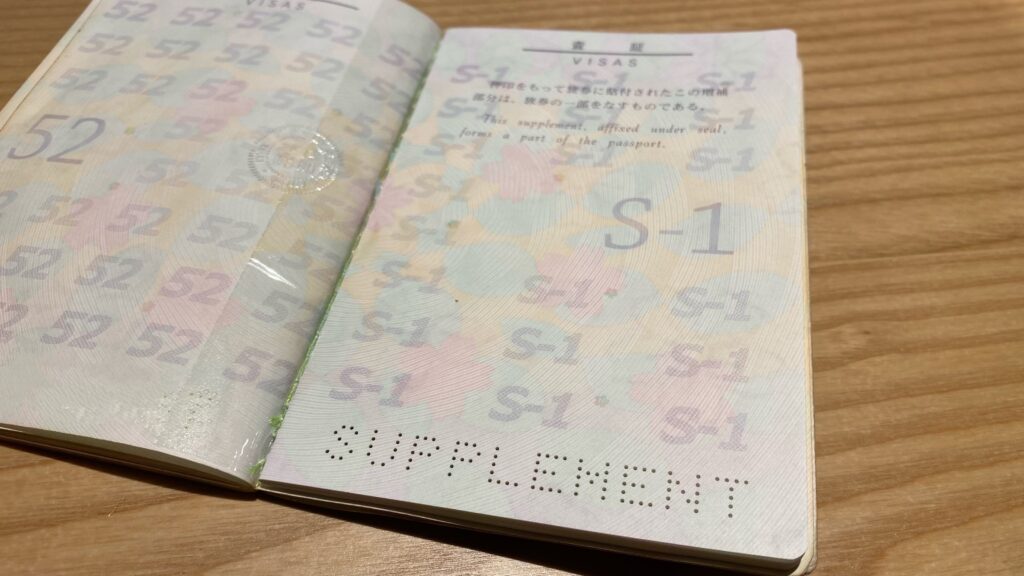 VISAS
52
査 証
VISAS
押印をもって旅券に貼付されたこの増補
部分は、旅券の一部をなすものである。
This supplement, affixed under seal,
forms a part of the passport.
S-1
SUPPLEMENT